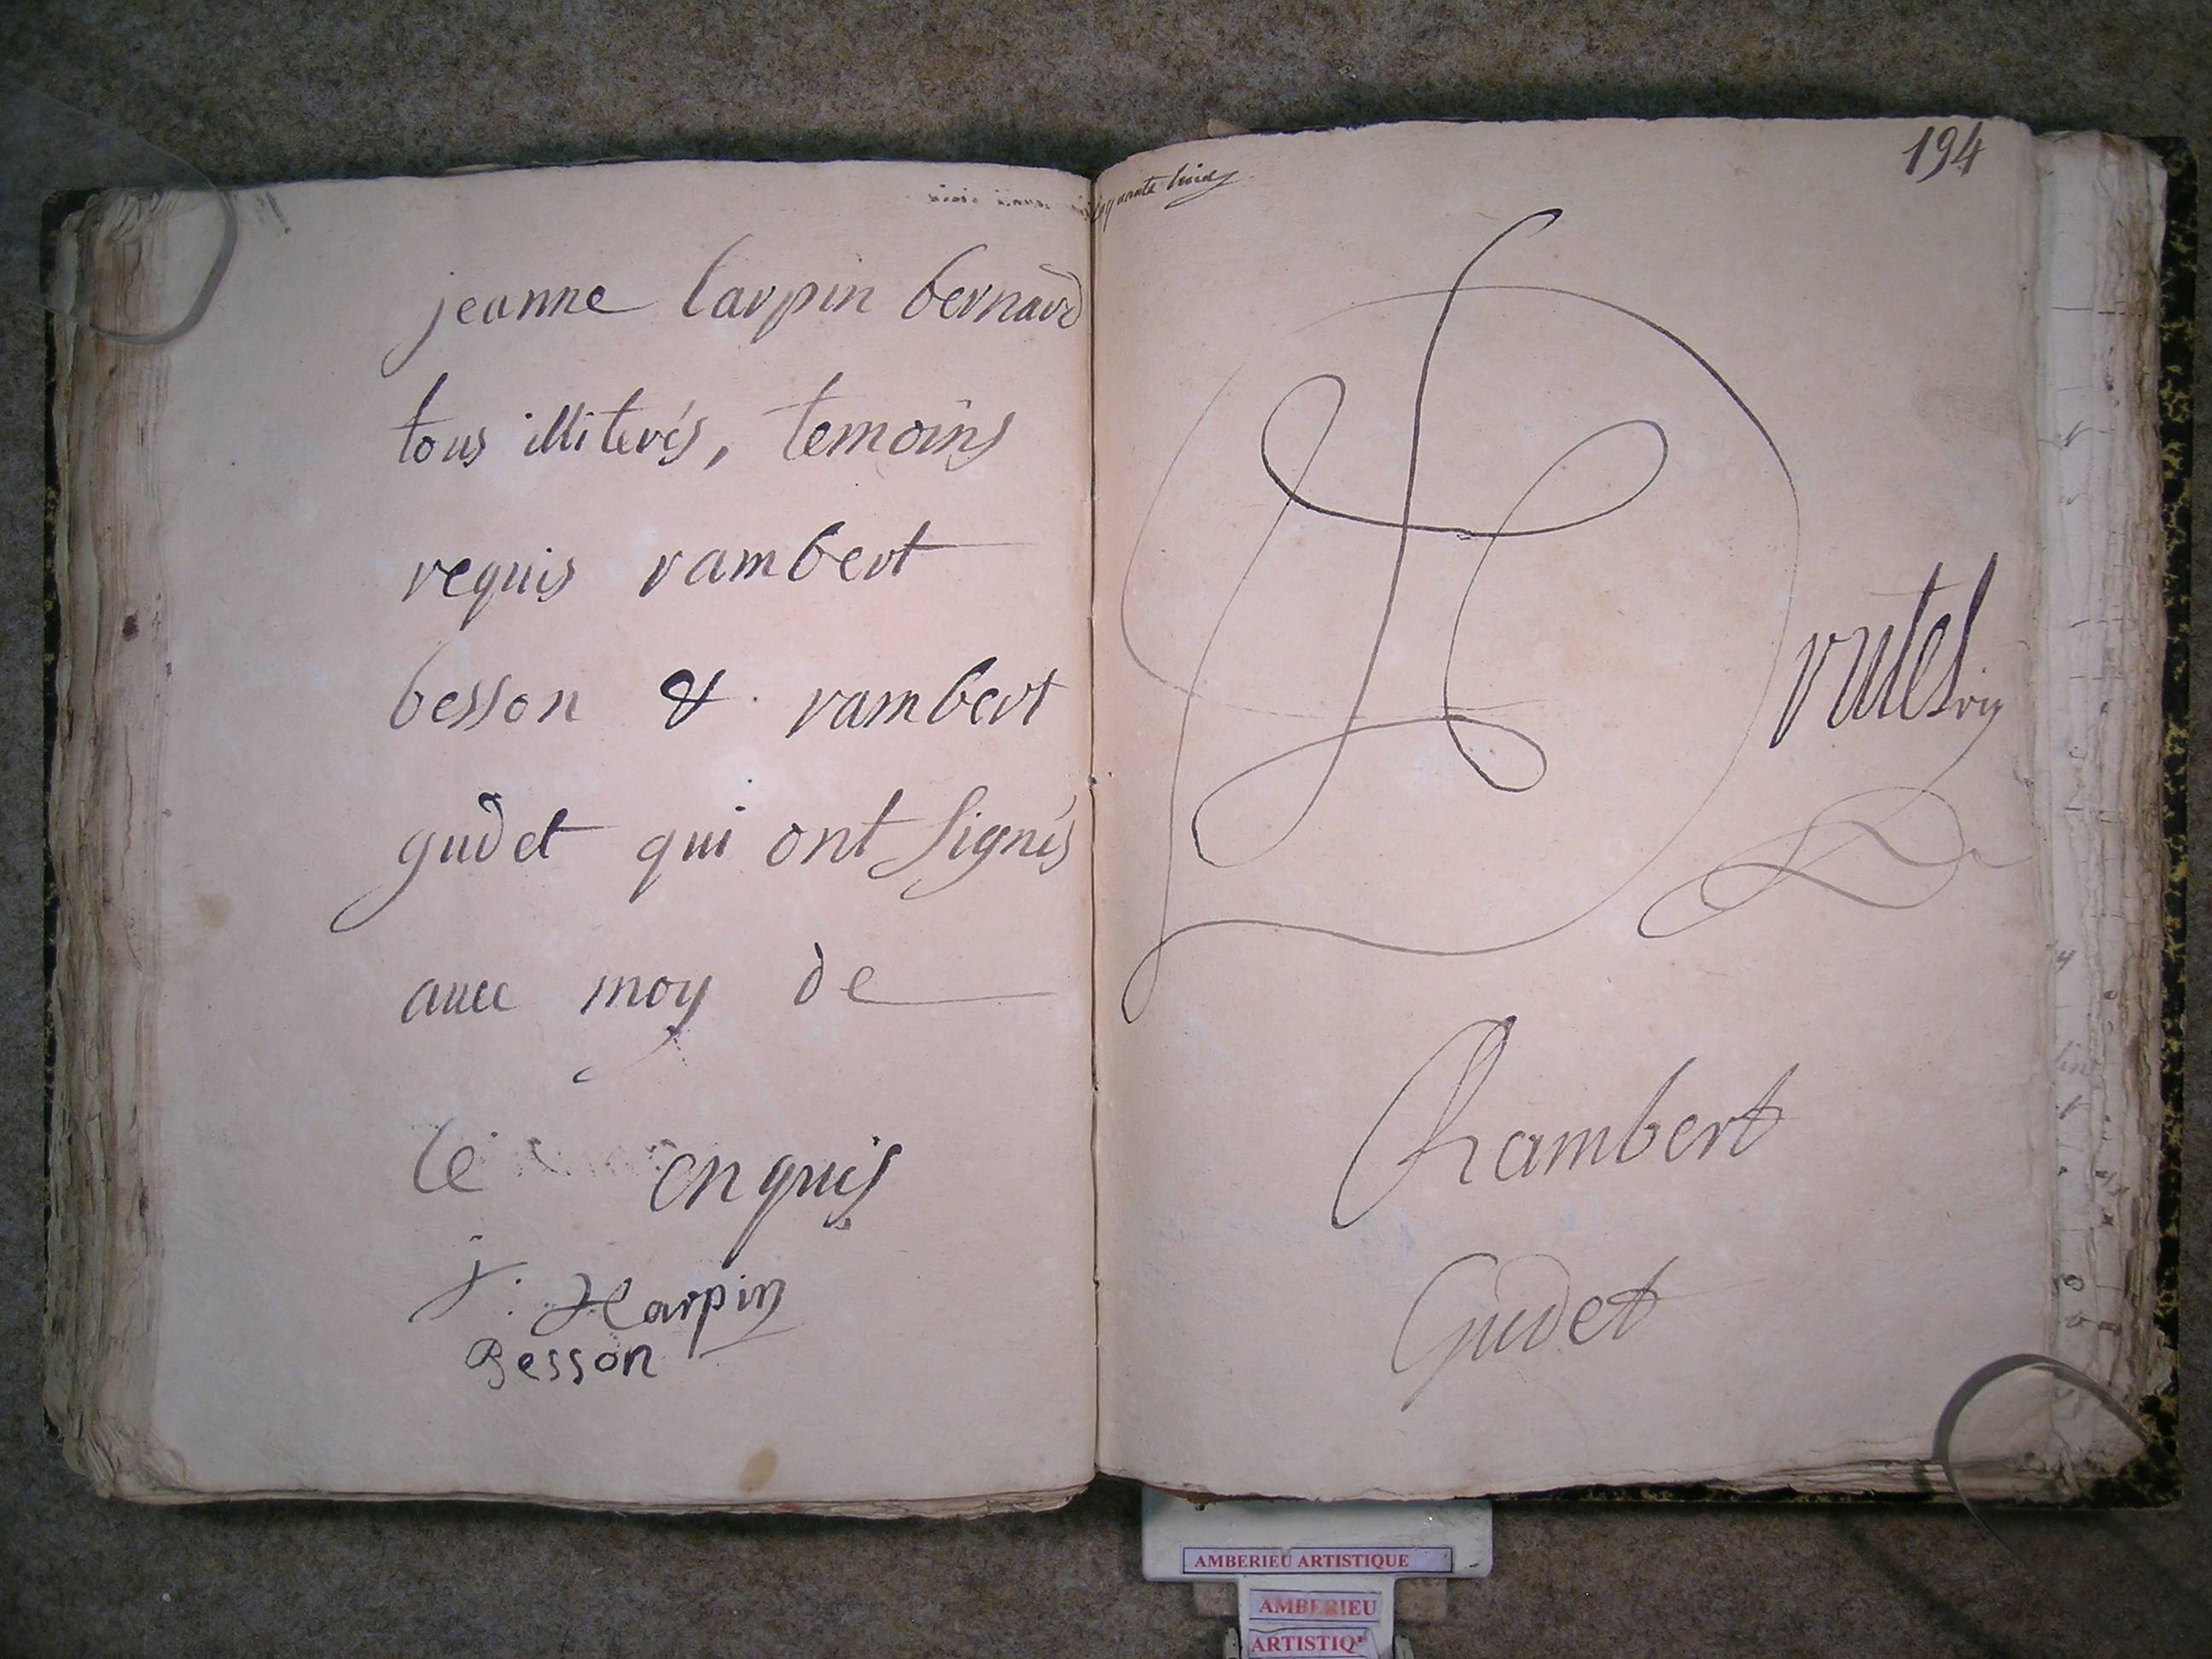 jeanne larpin bernard
tous illiterés, temoins
requis rambert
besson & rambert
gudet qui ont signés
auec moy de
ce enquis
j. Harpin
Besson
194
Rambert
Gudet
AMBERIEU ARTISTIQUE
AMBERIEU
ARTISTIQ